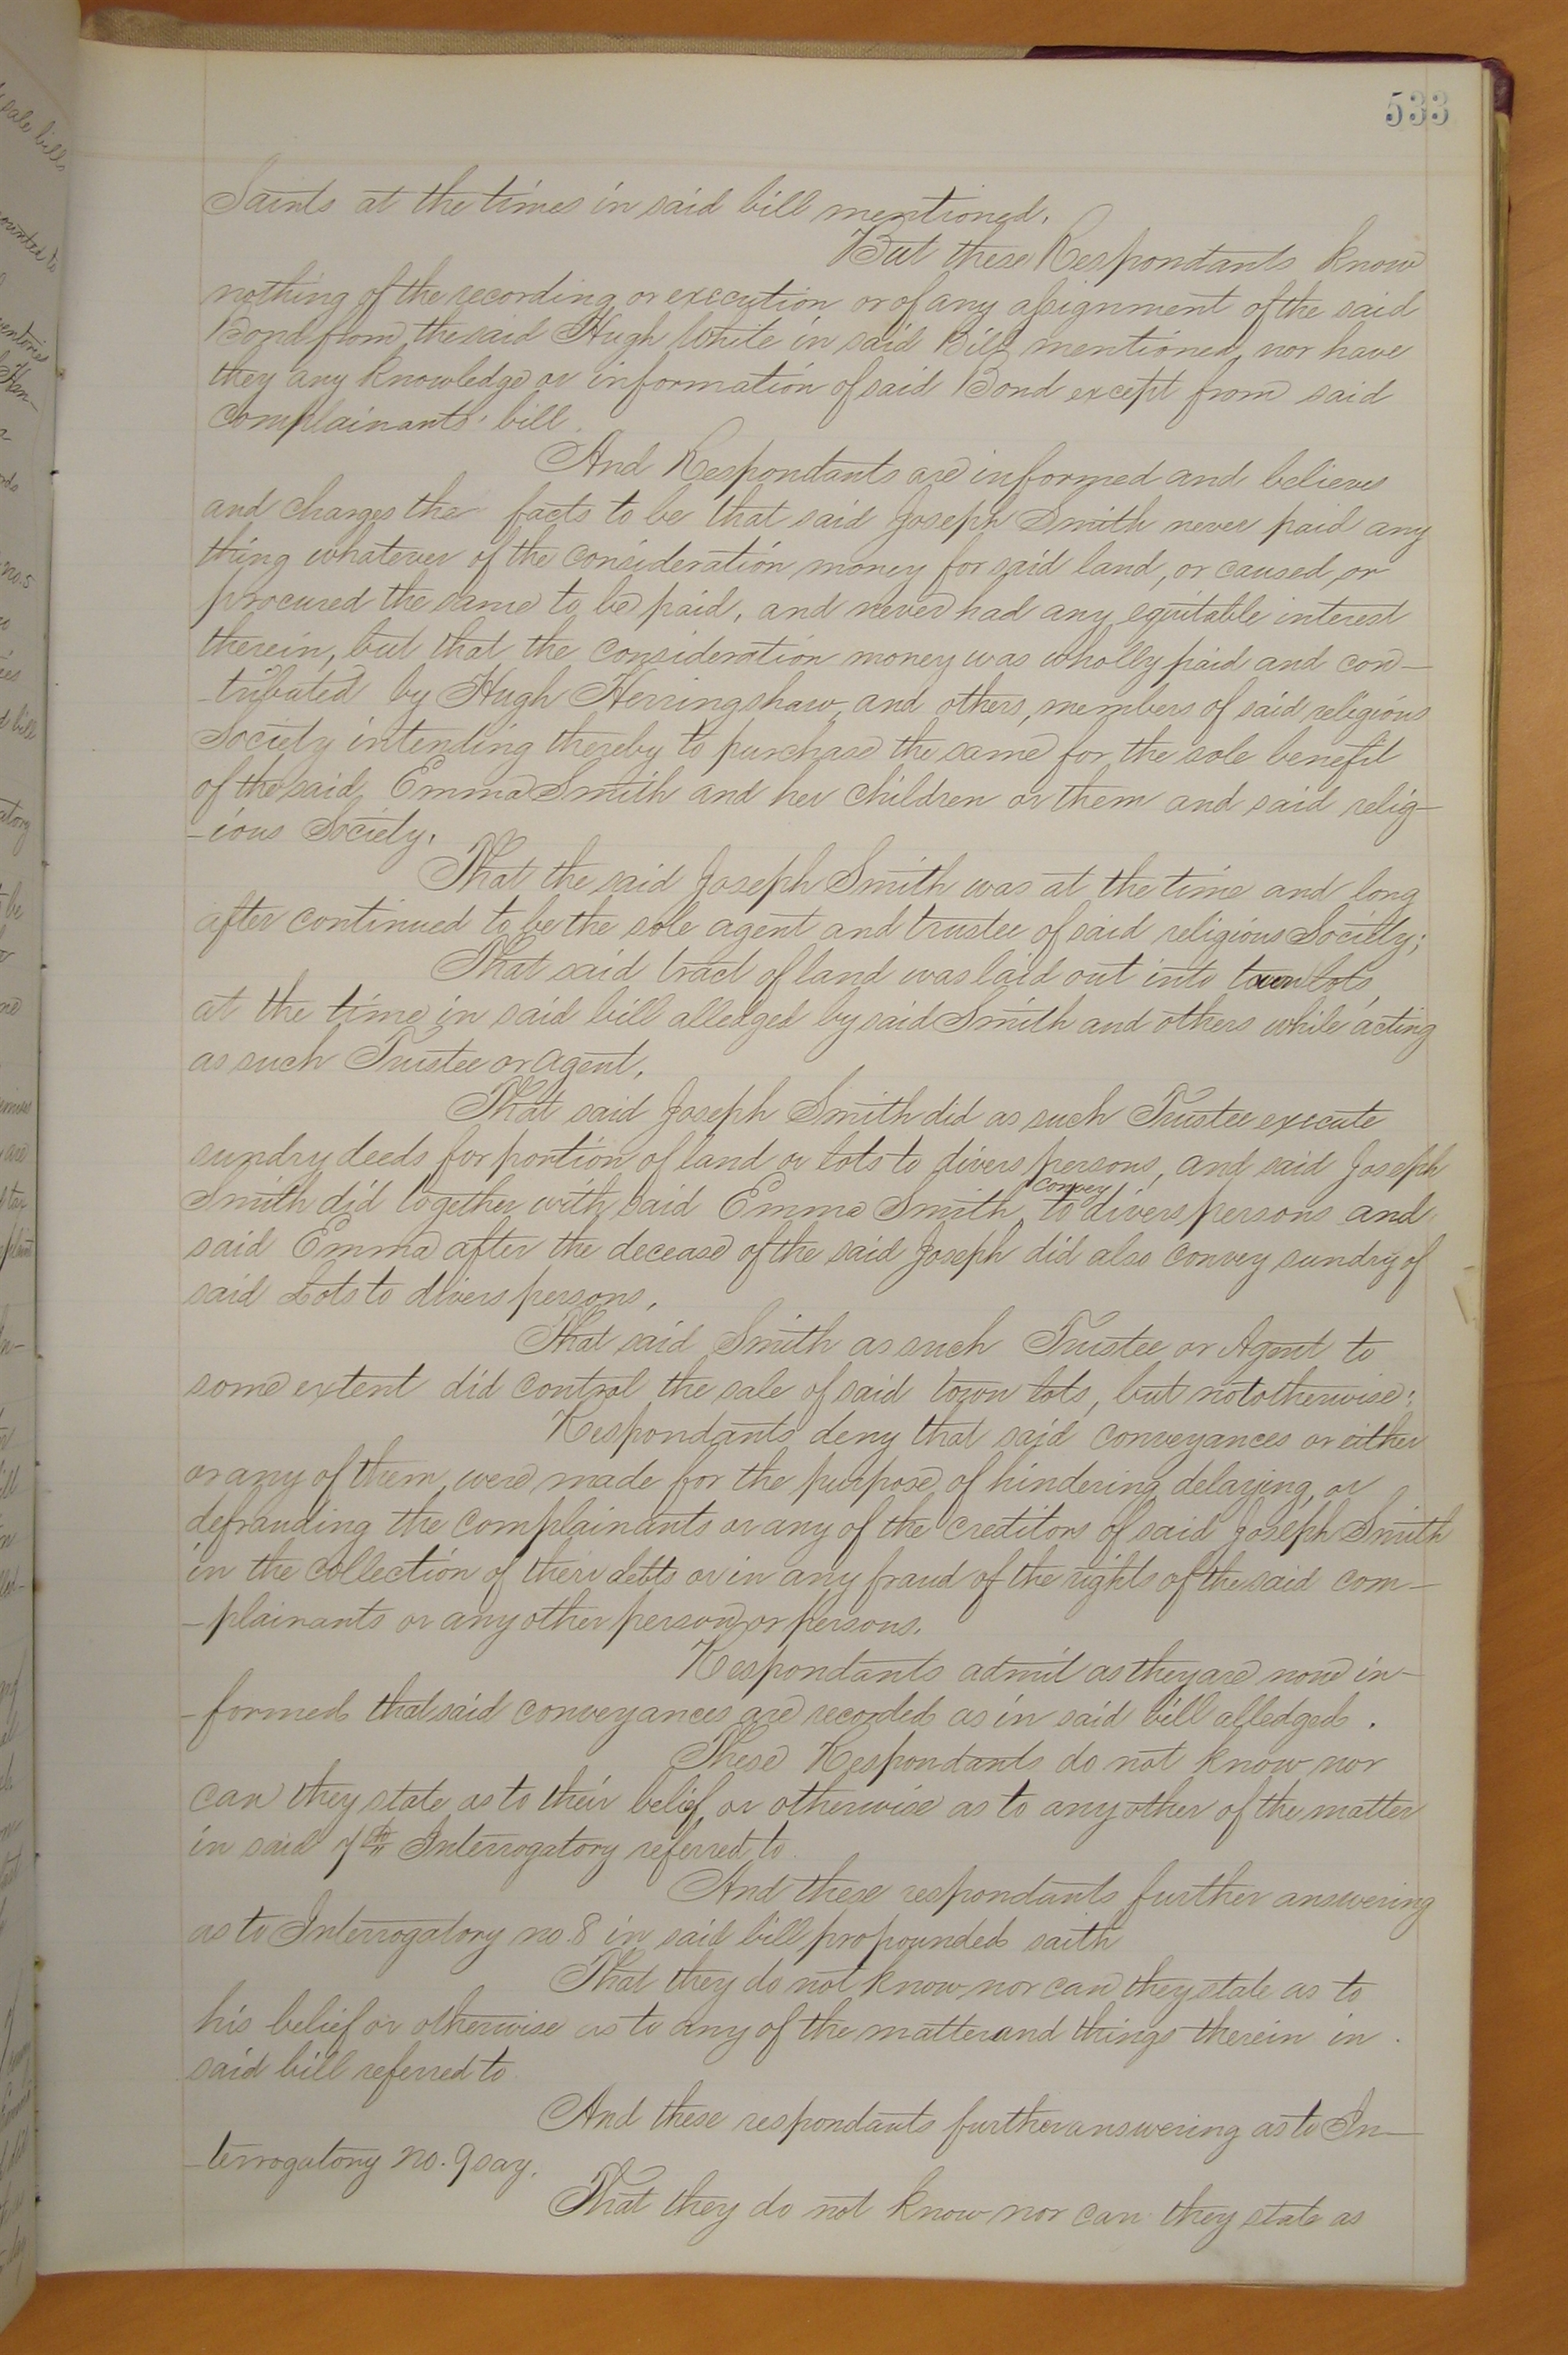 533
Saints at the times in said bill mentioned.
But these Respondants know
nothing of the recording or execution or of any assignment of the said
Bond from the said Hugh White in said Bill mentioned, nor have
they any knowledge or information of said Bond except from said
complainants' bill.
And Respondants are informed and believes
and charges the facts to be that said Joseph Smith never paid any
thing whatever of the consideration money for said land, or caused, or
procured the same to be paid, and never had any equitable interest
therein, but that the consideration money was wholly paid and con-
-tributed by Hugh Herringshaw and others, members of said religious
Society intending thereby to purchase the same for the sole benefit
of the said Emma Smith and her children or them and said relig-
-ious Society.
That the said Joseph Smith was at the time and long
after continued to be the sole agent and trustee of said religious Society;
That said tract of land was laid out into town lots,
at the time in said bill alledged by said Smith and others while acting
as such Trustee or agent.
That said Joseph Smith did as such Trustee execute
sundry deeds for portion of land or lots to divers persons, and said Joseph
convey
Smith did together with said Emma Smith, to divers persons and
said Emma after the decease of the said Joseph did also convey sundry of
said Lots to divers persons.
That said Smith as such Trustee or Agent to
some extent did control the sale of said town lots, but not otherwise:
Respondants deny that said conveyances or either
or any of them, were made for the purpose of hindering, delaying, or
defrauding the complainants or any of the creditors of said Joseph Smith
in the collection of their debts or in any fraud of the rights of the said com-
-plainants or any other person or persons.
Respondants admit as they are now in-
-formed that said conveyances are recorded as in said bill alledged.
These Respondants do not know nor
can they state as to their belief or otherwise as to any other of the matter
in said 7th Interrogatory referred to.
And these respondants further answering
as to Interrogatory no. 8 in said bill propounded saith
That they do not know nor can they state as to
his belief or otherwise as to any of the matter and things therein in
said bill referred to
And these respondants further answering as to In-
-terrogatory no. 9 say.
That they do not know nor can they state as